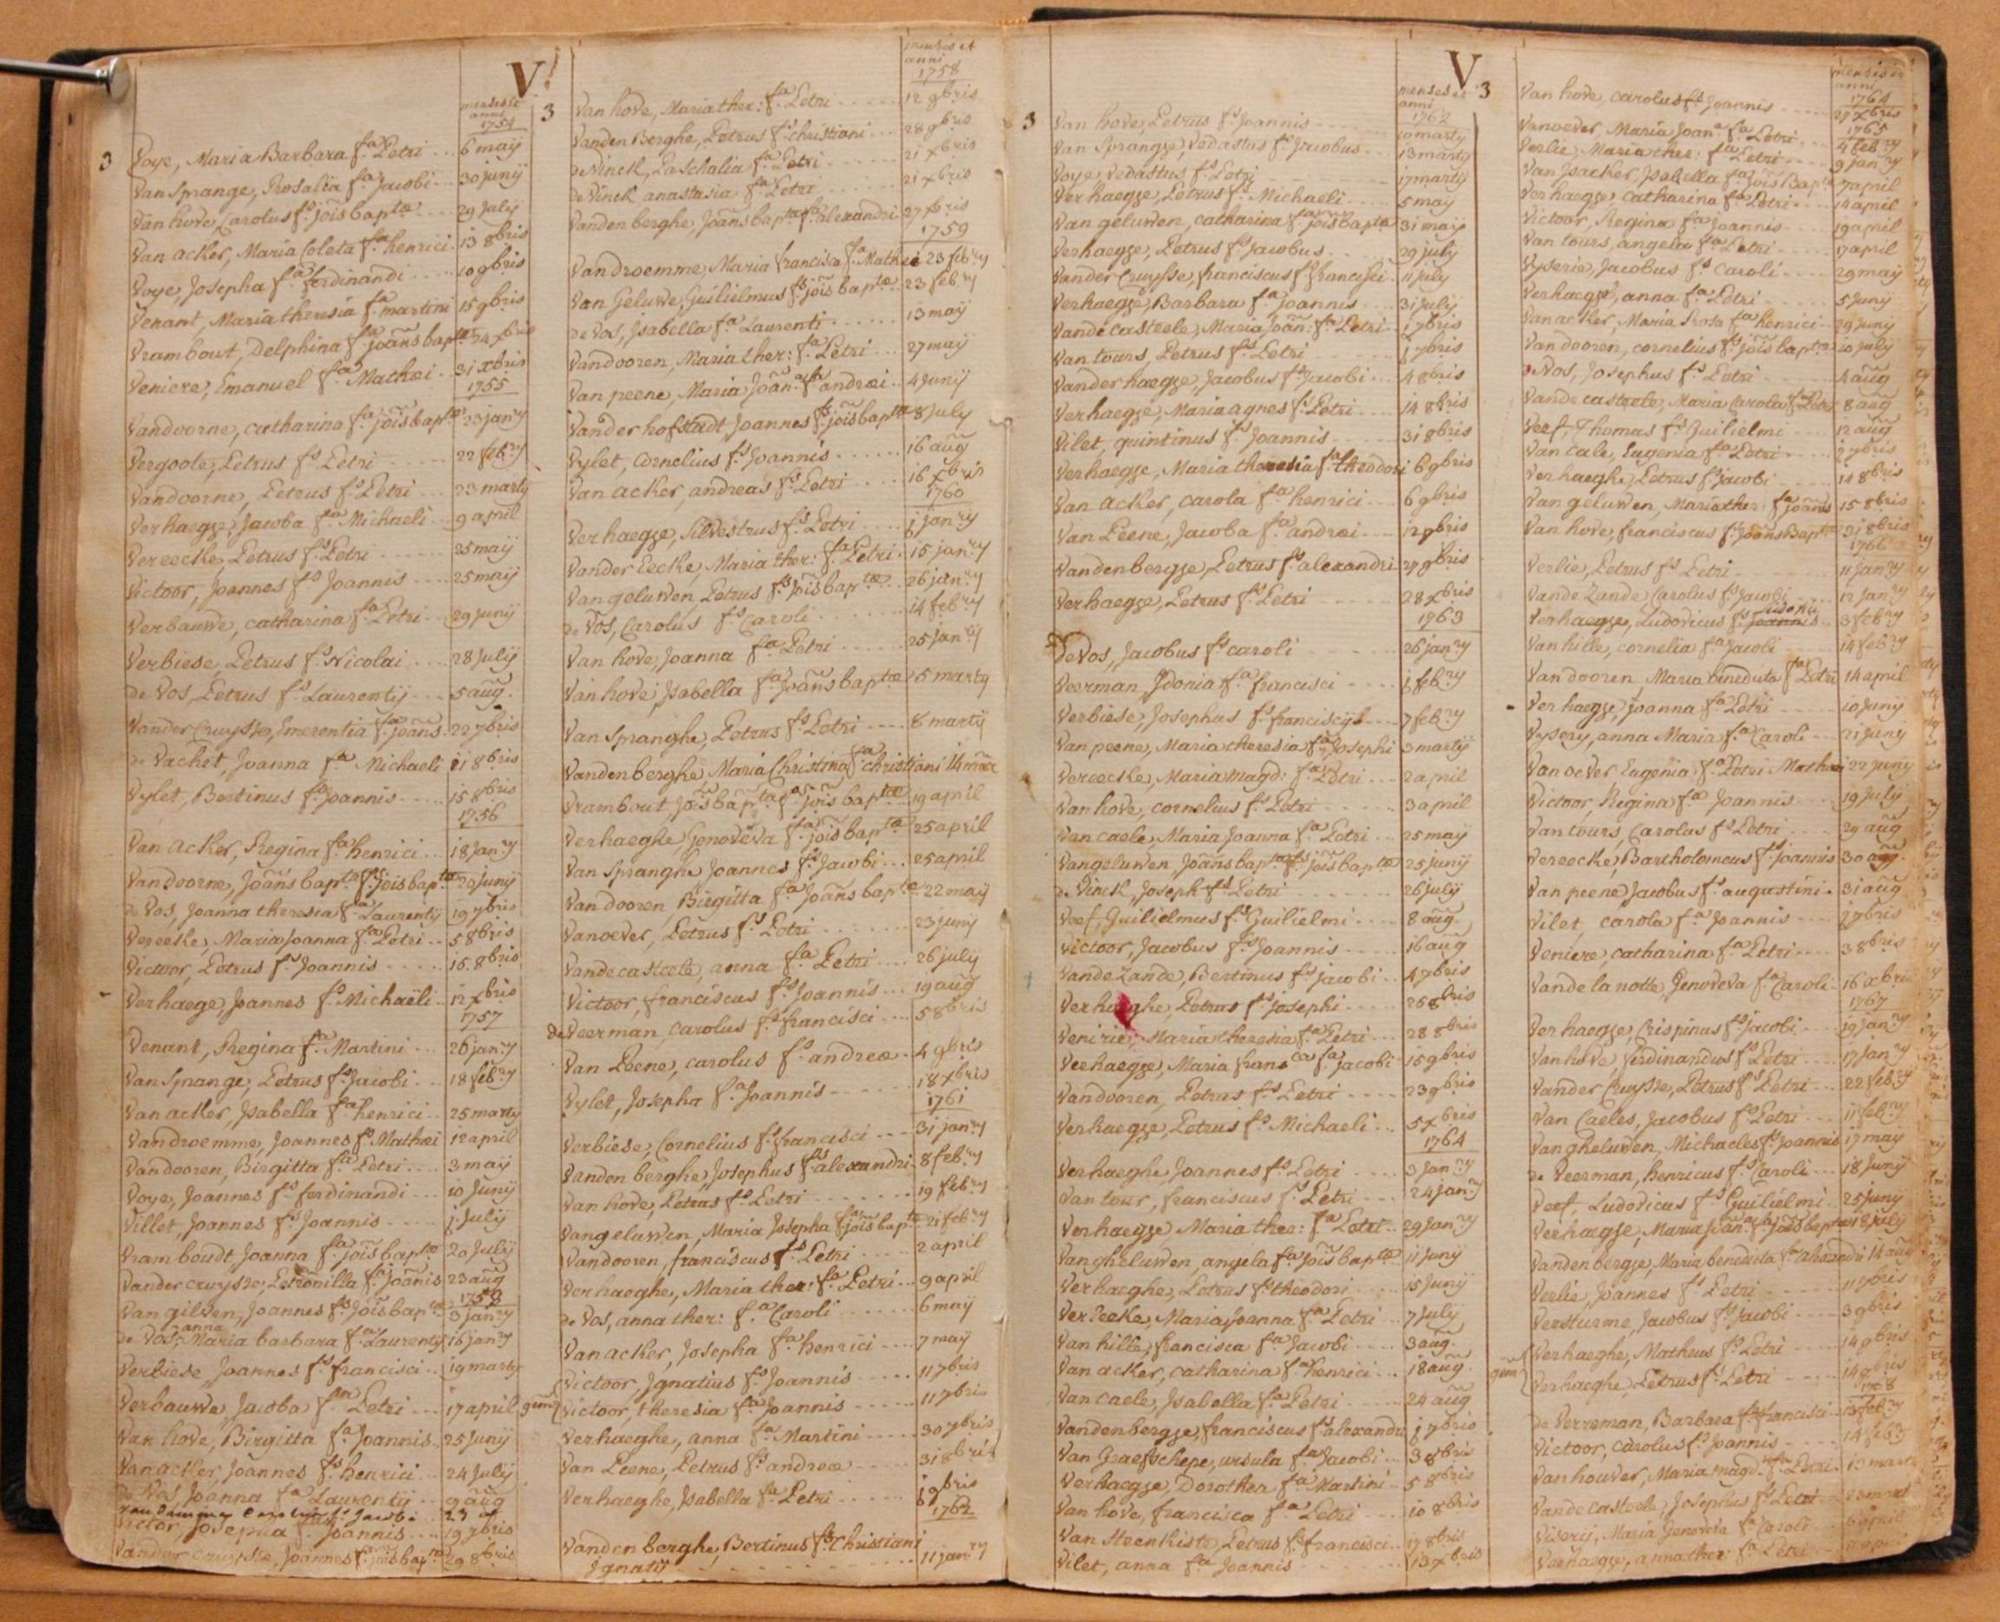 V.
menses et
anni
1754
3 Voye, Maria Barbara fa Petri 6 maij
Van Sprange, Rosalia fa Jacobi 30 junij
Van hove, Carolus fs jõis bapta 29 July
Van acker, Maria Coleta fa henrici 13 8bris
Voye, Josepha fa ferdinandi 10 9bris
Venant, Maria theresia fa martini 15 9bris
Vrambout, Delphina fa joãns bapta 24 xbris
Veniere, Emanuel fs Mathæi 31 xbris
1755
Vandoorne, catharina fa joisbapta 23 janry
Vergoote, Petrus fs Petri 22 febry
Vandoorne, Petrus fs Petri 23 martij
Verhaegge, Jacoba fa Michaeli 9 april
Vereecke, Petrus fs Petri 25 maij
Victoor, Joannes fs Joannis 25 maij
Verbauwe, catharina fa Petri 29 junij
Verbiese, Petrus fs Nicolai 28 July
de Vos, Petrus fs Laurentij 5 aug.
Vander Cruysse, Emerentia fa joãns 22 7bris
de Vachet, Joanna fa Michaeli 11 8bris
Vylet, Bertinus fs joannis 15 8bris
1756
Van acker, Regina fa henrici 18 janry
Vandoorne, Joãns bapta fs jois bapta 20 junij
de Vos, Joanna theresia fa Laurentij 19 7bris
Vereeke, Maria Joanna fa Petri 5 8bris
Victoor, Petrus fs Joannis 16 8bris
Verhaege, Joannes fs Michaëli 12 xbris
1757
Venant, Regina fa Martini 26 janry
Van Sprange, Petrus fs Jacobi 18 febry
Van acker, Isabella fa henrici 25 martij
Vandroemme, Joannes fs Mathæi 12 april
Vandooren, Birgitta fa Petri 3 maij
Voye, Joannes fs ferdinandi 10 Junij
Villet, Joannes fs Joannis j July
Vramboudt, Joanna fa jois bapta 20 July
Vander cruysse, Petronilla fa joãnis 23 aug
1758
Van gilwen, Joannes fs jõis bapta 3 janry
anna
de Vos, Maria barbara fa Laurentij 16 janry
Verbiese Joannes fs francisci 19 martij
Verbauwe Jacoba fa Petri 17 april
Van hove, Birgitta fa Joannis 25 Junij
Van acker, Joannes fs henrici 24 July
de Vos Joanna fa Laurentij 9 aug
Victor, Josepha fa Joannis 19 7bris
Vander cruysse, Joannes fs jois bapta 29 8bris
menses et
anni
1758
3 Van hove, Maria ther: fa Petri 12 9bris
Vanden Berghe, Petrus fs christiani 28 9bris
de Vinck, Paschalia fa Petri 21 xbris
de Vinck anastasia fa Petri 21 xbris
Vanden berghe, Joãns bapta fs alexandri 27 xbris
1759
Vandroemme, Maria francisca fa Mathæi 23 febry
Van Geluwe, Guilielmus fs jõis bapta 23 febry
de Vos, Isabella fa Laurenti 13 maij
Vandooren, Maria ther: fa Petri 27 maij
Van peene, Maria Joãn: fa andræi 4 Junij
Vander hofstadt Joannes fs jõis bapta 8 July
Vylet, Cornelius fs Joannis 16 aug
Van acker, andreas fs Petri 16 xbris
1760
Verhaegge, Silvestrus fs Petri j janry
Vander Eecke, Maria ther: fa Petri 15 janry
Van geluwen, Petrus fs jõis bapta 26 janry
de Vos, Carolus fs Caroli 14 febry
Van hove, Joanna fa Petri 25 janry
Van hove, Isabella fa joãns bapta 5 martij
Van Spranghe, Petrus fs Petri 8 martij
Vandenberghe, Maria Christina fa christiani 14 mar
Vrambout, Jõis bapta fs jõis bapta 19 april
Verhaeghe Genoveva fa jõis bapta 25 april
Van Spranghe Joannes fs Jacobi 25 april
Vandooren, Birgitta fa Joãns bapta 22 maij
Vanoever, Petrus fs Petri 23 junij
Vandecasteele, anna fa Petri 26 july
Victoor, franciscus fs Joannis 19 aug
de Veerman, carolus fs francisci 5 8bris
Van Peene, carolus fs andreæ 4 9bris
Vylet, Josepha fa Joannis 18 xbris
1761
Verbiese, Cornelius fs francisci 31 janry
Vanden berghe, Josephus fs alexandri 8 febry
Van hove, Petrus fs Petri 19 febry
Vangeluwen, Maria Josepha fa jõis bapta 21 febry
Vandooren, franciscus fs Petri 2 april
Verhaeghe, Maria ther: fa Petri 9 april
de Vos, anna ther: fa Caroli 6 maij
Van acker, Josepha fa henrici 7 maij
gem Victoor, Ignatius fs Joannis 11 7bris
Victoor, theresia fa Joannis 11 7bris
Verhaeghe, anna fa Martini 30 7bris
Van Peene, Petrus fs andreæ 31 8bris
Verhaeghe, Isabella fa Petri j 9bris
1762
Vanden berghe, Bertinus fs Christiani
Ignatij 11 janry
V
menses et
anni
1762
3 Van hove, Petrus fs Joannis 10 martij
Van Sprange, vedastus fs Jacobus 13 martij
Voye vedastus fs Petri 17 martij
Verhaegge, Petrus fs Michaeli 5 maij
Van geluwen, catharina fa joisbapta 31 maij
Verhaegge, Petrus fs Jacobus 29 july
Vander Cruysse, franciscus fs francisci 11 july
Verhaegge, Barbara fa Joannis 31 july
Vande casteele, Maria Joãn: fa Petri j 7bris
Van tours, Petrus fs Petri j 7bris
Vander haegge, Jacobus fs Jacobi 4 8bris
Verhaegge, Maria agnes fa Petri 14 8bris
Vilet, quintinus fs Joannis 31 8bris
Verhaegge, Maria theresia fa theodori 6 9bris
Van acker, carola fa henrici 6 9bris
Van Peene, Jacoba fa andræi 12 9bris
Vandenbergge, Petrus fs alexandri 27 9bris
Verhaegge, Petrus fs Petri 28 xbris
1763
de Vos, Jacobus fs caroli 26 janry
Veerman, Idonia fa francisci j febry
Verbiese, Josephus fs francisci 7 febry
Van peene, Maria theresia fa Josephi 3 martij
Vereecke, Maria magd: fa Petri 2 april
Van hove, cornelius fs Petri 3 april
Van caele, Maria Joanna fa Petri 25 maij
Vangeluwen, Joãns bapta fs jois bapta 25 junij
de Vinck, Joseph fs Petri 26 july
Veef, Guilielmus fs Guilielmi 8 aug
Victoor, Jacobus fs Joannis 16 aug
Vande Zande, Bertinus fs jacobi 4 7bris
Verhaeghe, Petrus fs josephi 26 8bris
Venirie, Maria theresia fa Petri 28 8bris
Verhaegge, Maria franca fa jacobi 15 9bris
Vandooren, Petrus fs Petri 23 9bris
Verhaegge, Petrus fs Michaeli 5 xbris
1764
Verhaeghe Joannes fs Petri 3 janry
Van tour, franciscus fs Petri 24 janry
Verhaegge, Maria ther: fa Petri 29 janry
Vangheluwen, angela fa jois bapta 11 junij
Verhaeghe, Petrus fs theodori 15 Junij
Vereeke, Maria Joanna fa Petri 7 July
Van hille, francisca fa Jacobi 3 aug
Van acker, catharina fa henrici 18 aug
Van caele, Isabella fa Petri 24 aug
Vandenbergge, franciscus fs alexandri j 7bris
Van Graefschepe, ursula fa Jacobi 3 8bris
Verhaegge, Dorothea fa Martini 5 8bris
Van hove, francisca fa Petri 10 8bris
Van Steenkiste, Petrus fs francisci 17 8bris
Vilet, anna fa Joannis 13 xbris
menses et
anni
1764
3 Van hove, carolus fs Joannis 27 xbris
1765
Vanoever, Maria Joana fa Petri 4 febry
Verlie, Maria ther: fa Petri 9 janry
Van Isacker, Isabella fa jõis Bapta 7 april
Verhaegge, catharina fa Petri 14 april
Victoor, Regina fa Joannis 19 april
Van tours, angela fa Petri 17 april
Vyserie, Jacobus fs caroli 29 maij
Verhaegge, anna fa Petri 5 Junij
Van acker, Maria Rosa fa henrici 29 junij
Vandooren, cornelius fs jõis bapta 20 july
de Vos, Josephus fs Petri 4 aug
Vande casteele, Maria Carola fa Petri 8 aug
Veef, Thomas fs Guilielmi 12 aug
Van cale, Eugenia fa Petri j 7bris
Verhaeghe, Petrus fs jacobi 11 8bris
Van geluwen, Maria ther: fa joãnis 15 8bris
Van hove, franciscus fs Joãns Bapta 31 8bris
1766
Verlie, Petrus fs Petri 11 janry
Vande Zande Carolus fs Jacobi 12 janry
Verhaegge, Ludovicus fs Joannis 3 febry
Van hille, cornelia fa Jacobi 14 febry
Vandooren, Maria benedicta fa Petri 14 april
Verhaegge, joanna fa Petri 10 junij
Vysery, anna Maria fa Caroli 21 junij
Vanoever Eugenia fa Petri Mathæi 22 junij
Victoor, Regina fa Joannis 19 july
Van tours, Carolus fs Petri 29 aug
Vereecke, Bartholomeus fs joannis 30 aug
Van peene Jacobus fs augustini 31 aug
Vilet, carola fa Joannis j 7bris
Veniere, catharina fa Petri 3 8bris
Vande la notte, Genoveva fa Caroli 16 xbris
1767
Verhaegge, Crispinus fs jacobi 19 janry
Van hove, ferdinandus fs Petri 17 janry
Vander Cruysse, Petrus fs Petri 22 febry
Van Caeles, Jacobus fs Petri 11 febry
Van gheluwen, Michaeles fs joannis 17 maij
de Veerman, henricus fs Caroli 18 Junij
Veef, Ludovicus fs Guilielmi 25 junij
Verhaegge, Maria Joãn: fa jois bapta 18 july
Vandenbergge, Maria benedicta fa alexandri 14 aug
Verlie, Joannes fs Petri 11 7bris
Versturme, Jacobus fs jacobi 3 9bris
gem Verhaeghe, Matheus fs Petri 14 9bris
Verhaeghe Petrus fs Petri 14 9bris
1768
de Verreman, Barbara fa francisci febry
Victoor, carolus fs Joannis 14 febry
Van houver, Maria magd: fa Petri
Vande casteele, Josephus fs Petri
Viserij, Maria Genoveva fa Caroli april
Verhaegge, anna ther: fa Petri